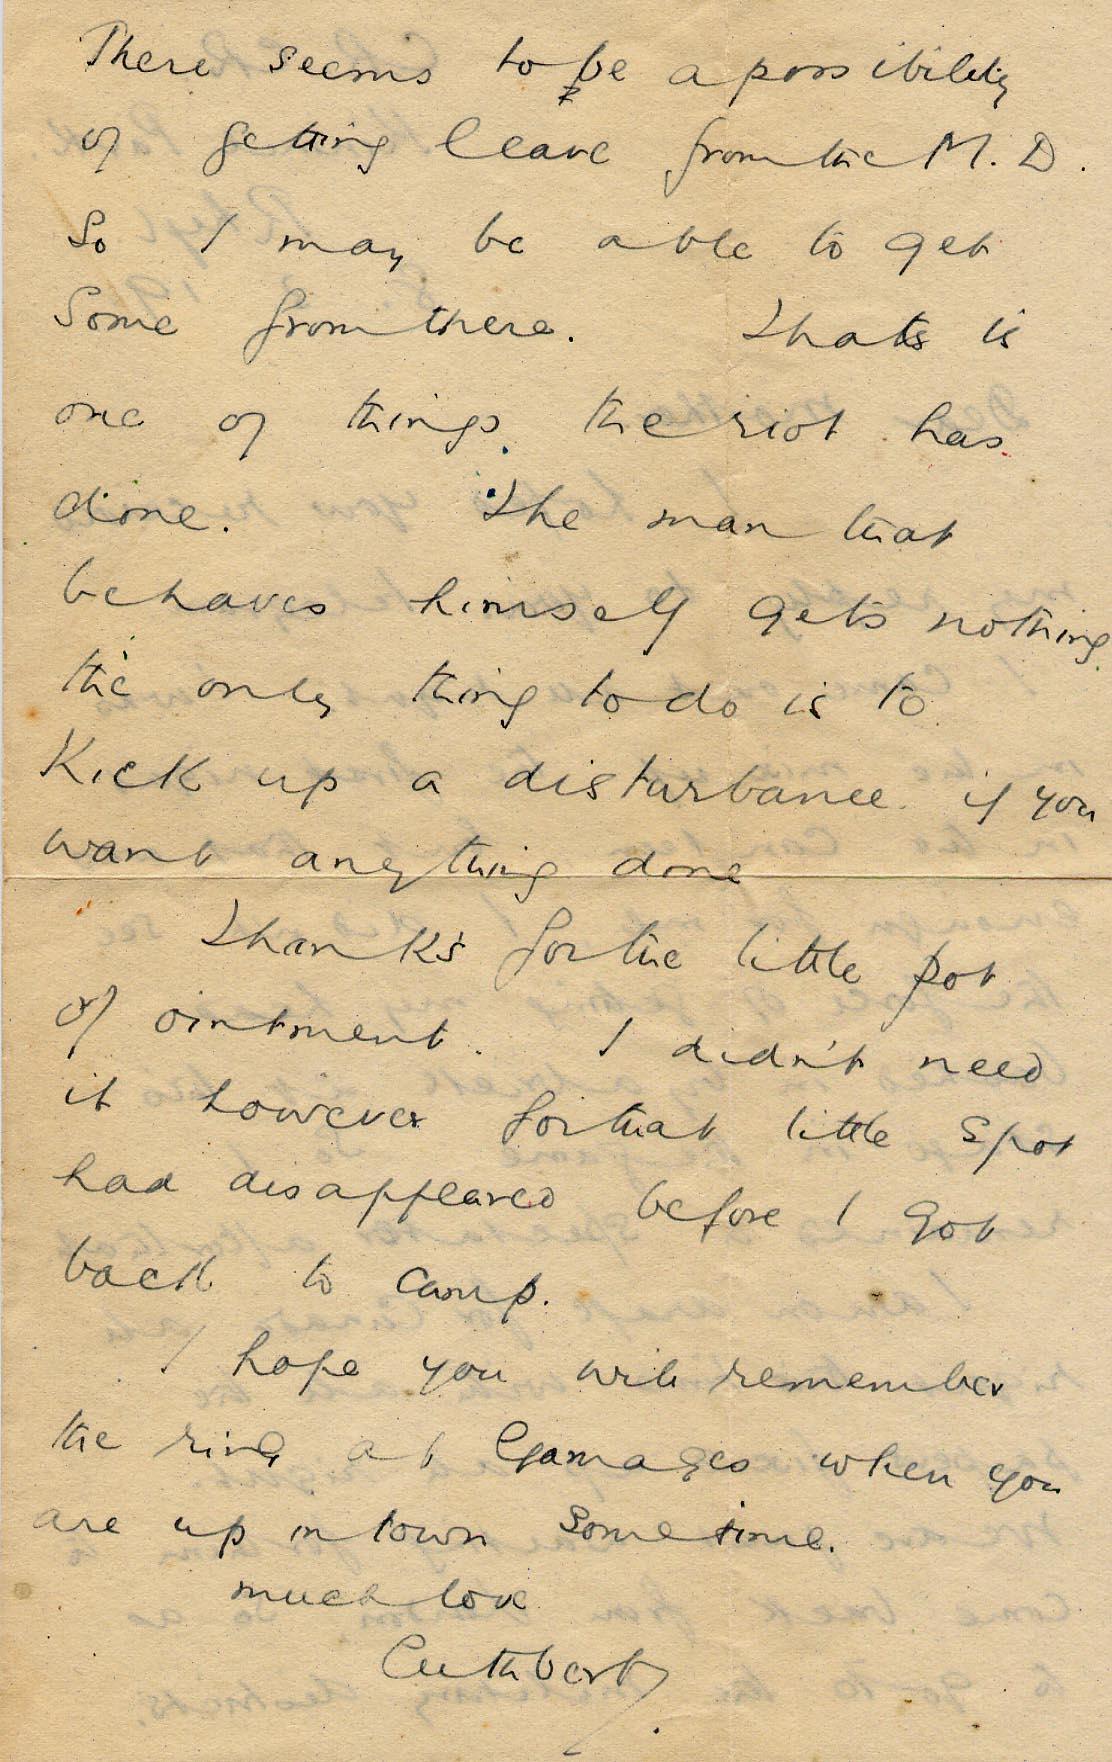 There seems to be a possibility
of getting leave from the M. D.
So I may be able to get
Some from there. Thats is
one of things the riot has
done. The man that
behaves himself gets nothing
the only thing to do is to
Kick up a disturbance if you
want anything done
Thanks for the little pot
of ointment. I didn't need
it however for that little spot
had disappeared before I got
back to camp.
I hope you will remember
the ring at Gamages when you
are up in town sometime.
much love
Cuthbert